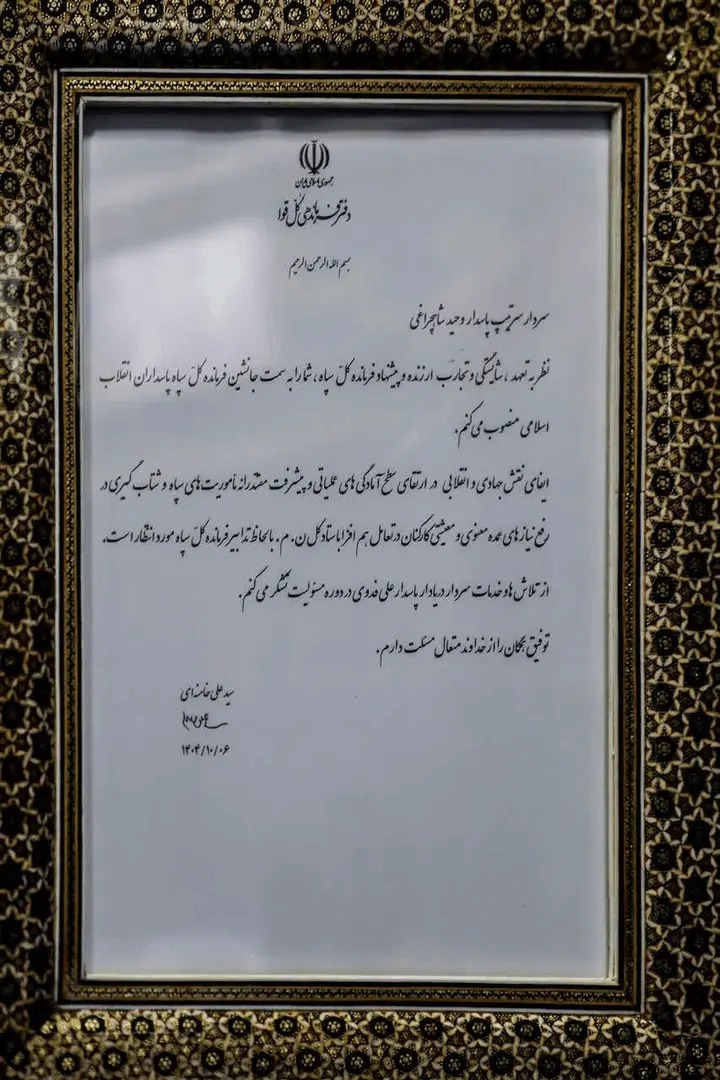 جمهوری اسلامی ایران
دفتر فرماندهی کل قوا
بسم الله الرحمن الرحیم
سردار سرتیپ پاسدار وحید شاهچراغی
نظر به تعهد، شایستگی و تجارب ارزنده و پیشنهاد فرمانده کلّ سپاه، شما را به سمت جانشین فرمانده کلّ سپاه پاسداران انقلاب
اسلامی منصوب می‌کنم.
ایفای نقش جهادی و انقلابی در ارتقای سطح آمادگی‌های عملیاتی و پیشرفت مقتدرانه مأموریت‌های سپاه و شتاب‌گیری در
رفع نیازهای عمده معنوی و معیشتی کارکنان در تعامل هم افزا با ستاد کل ن. م. با لحاظ تدابیر فرمانده کلّ سپاه مورد انتظار است.
از تلاش‌ها و خدمات سردار دریادار پاسدار علی فدوی در دوره مسئولیت تشکر می‌کنم.
توفیق همگان را از خداوند متعال مسئلت دارم.
سید علی خامنه‌ای
۱۴۰۴/۱۰/۰۶